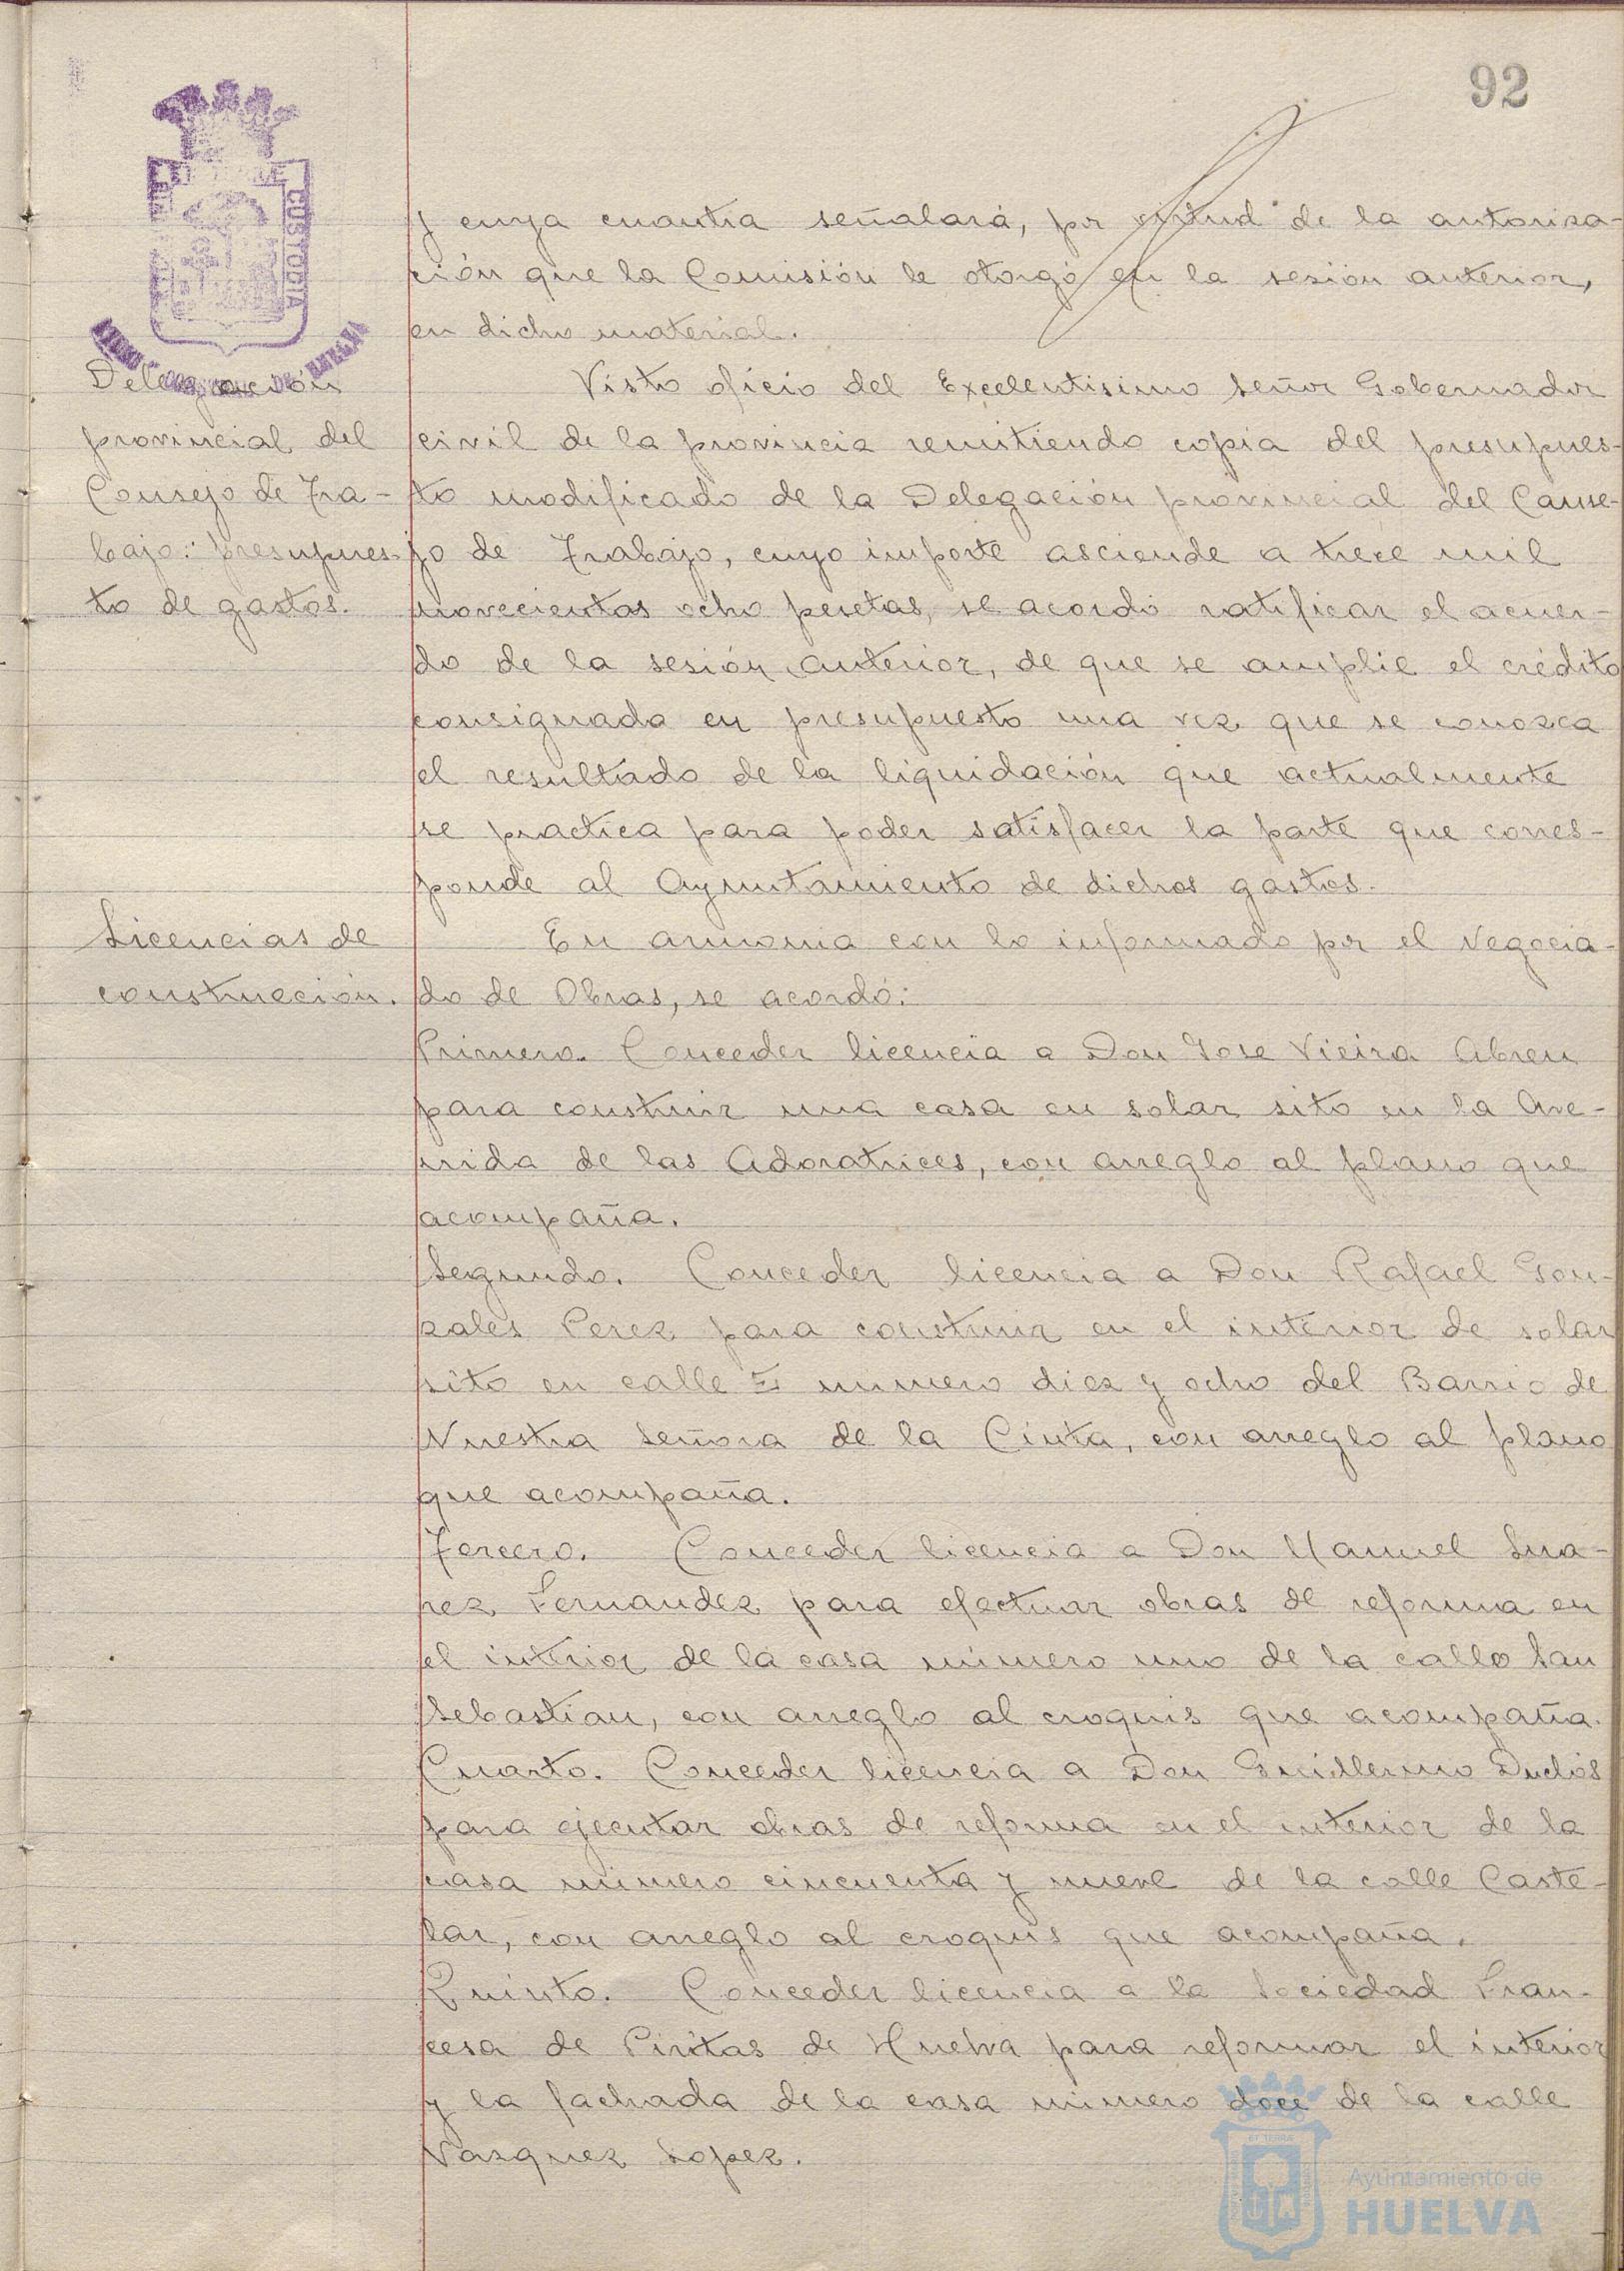 92
y cuya cuantia señalará, por virtud de la autoriza-
ción que la Comisión le otorgó en la sesión anterior,
en dicho material.
Delegación
provincial del
Consejo de Tra-
bajo: presupues-
to de gastos.
Visto oficio del Excelentisimo Señor Gobernador
civil de la provincia remitiendo copia del presupues-
to modificado de la Delegación provincial del Conse-
jo de Trabajo, cuyo importe asciende a trece mil
novecientas ocho pesetas, se acordó ratificar el acuer-
do de la sesión anterior, de que se amplie el crédito
consignado en presupuesto una vez que se conozca
el resultado de la liquidación que actualmente
se practica para poder satisfacer la parte que corres-
ponde al Ayuntamiento de dichos gastos.
Licencias de
construcción.
En armonia con lo informado por el Negocia-
do de Obras, se acordó:
Primero. Conceder licencia a Don Jose Vieira Abreu
para construir una casa en solar sito en la Ave-
nida de las Adoratrices, con arreglo al plano que
acompaña.
Segundo. Conceder licencia a Don Rafael Gon-
zales Perez para construir en el interior de solar
sito en calle E numero diez y ocho del Barrio de
Nuestra Señora de la Cinta, con arreglo al plano
que acompaña.
Tercero. Conceder licencia a Don Manuel Sua-
rez Fernandez para efectuar obras de reforma en
el interior de la casa numero uno de la calle San
Sebastian, con arreglo al croquis que acompaña.
Cuarto. Conceder licencia a Don Guillermo Duclós
para ejecutar obras de reforma en el interior de la
casa numero cincuenta y nueve de la calle Caste-
lar, con arreglo al croquis que acompaña.
Quinto. Conceder licencia a la Sociedad Fran-
cesa de Piritas de Huelva para reformar el interior
y la fachada de la casa numero doce de la calle
Vazquez Lopez.
Ayuntamiento de
HUELVA